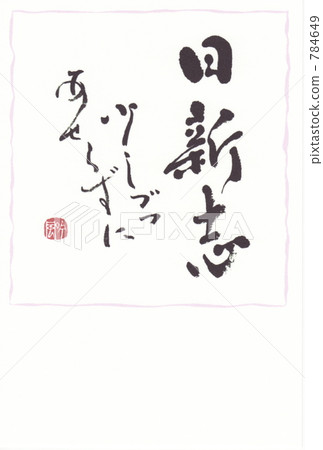 日新志
少しづつ
あせらずに
PIXTA
784649